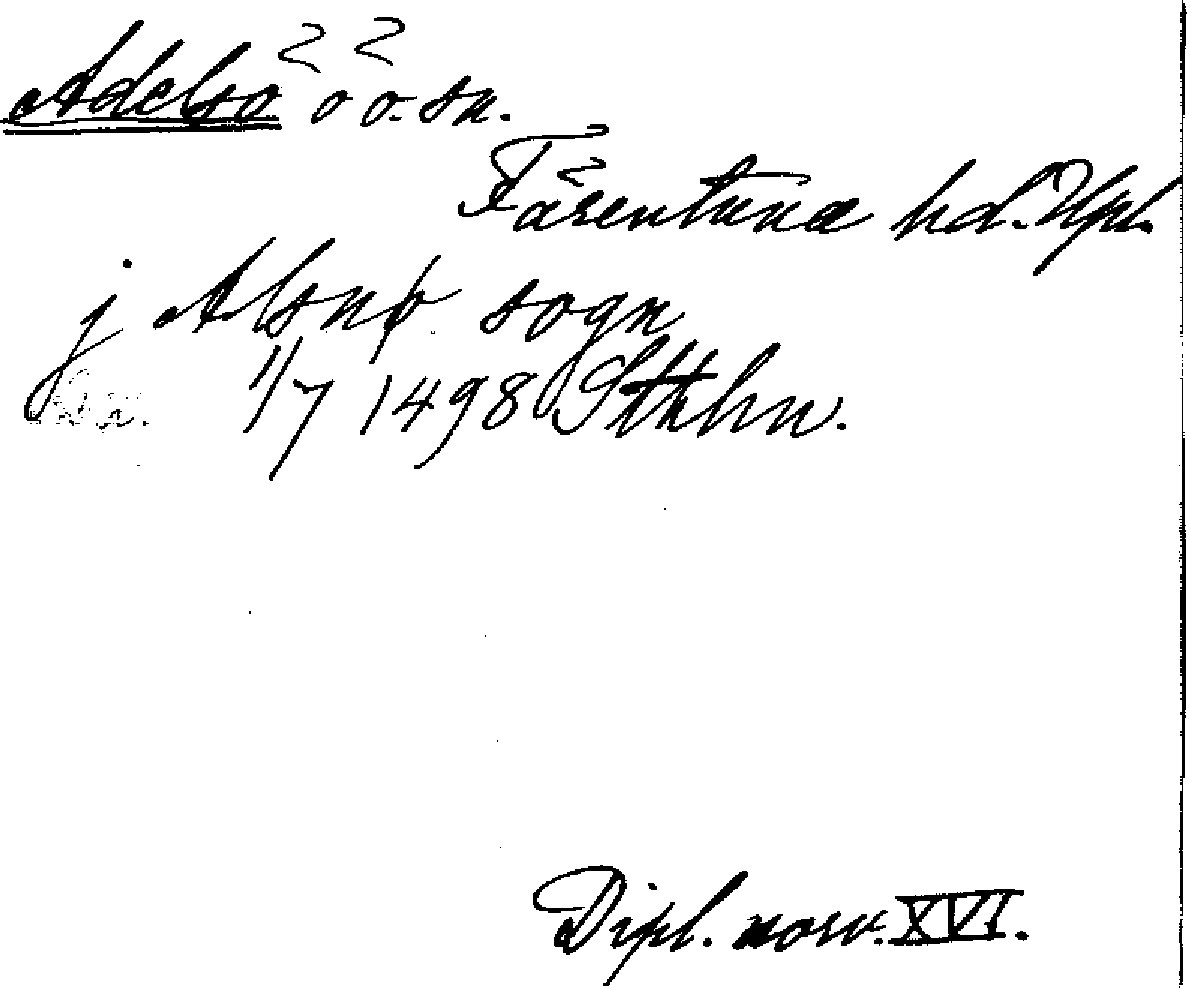 Adelsö ö o. sn.
Färentuna hd. Upl.
j Alsnø sogn
Or. 1/7 1498 Sthlm.
Dipl. norv. XVI.